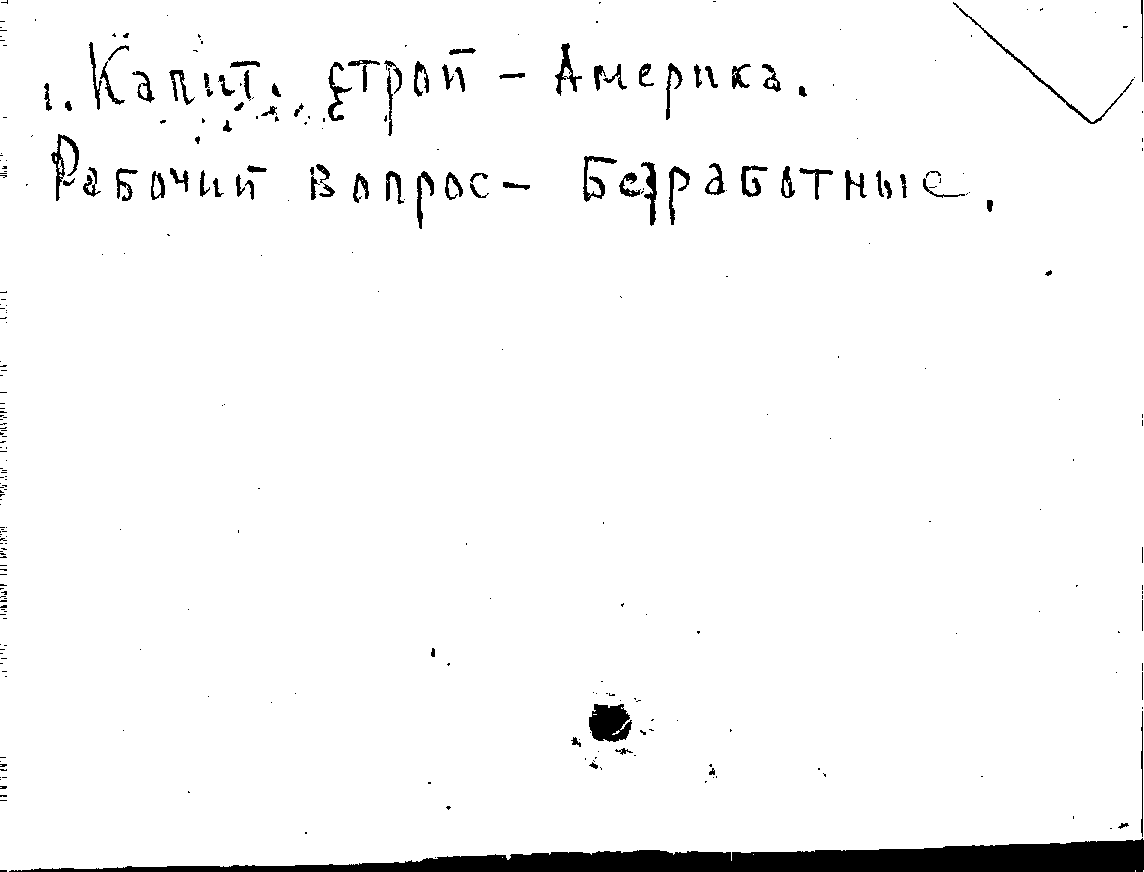 1. Капит. строй - Америка.
Рабочий вопрос - Безработные.